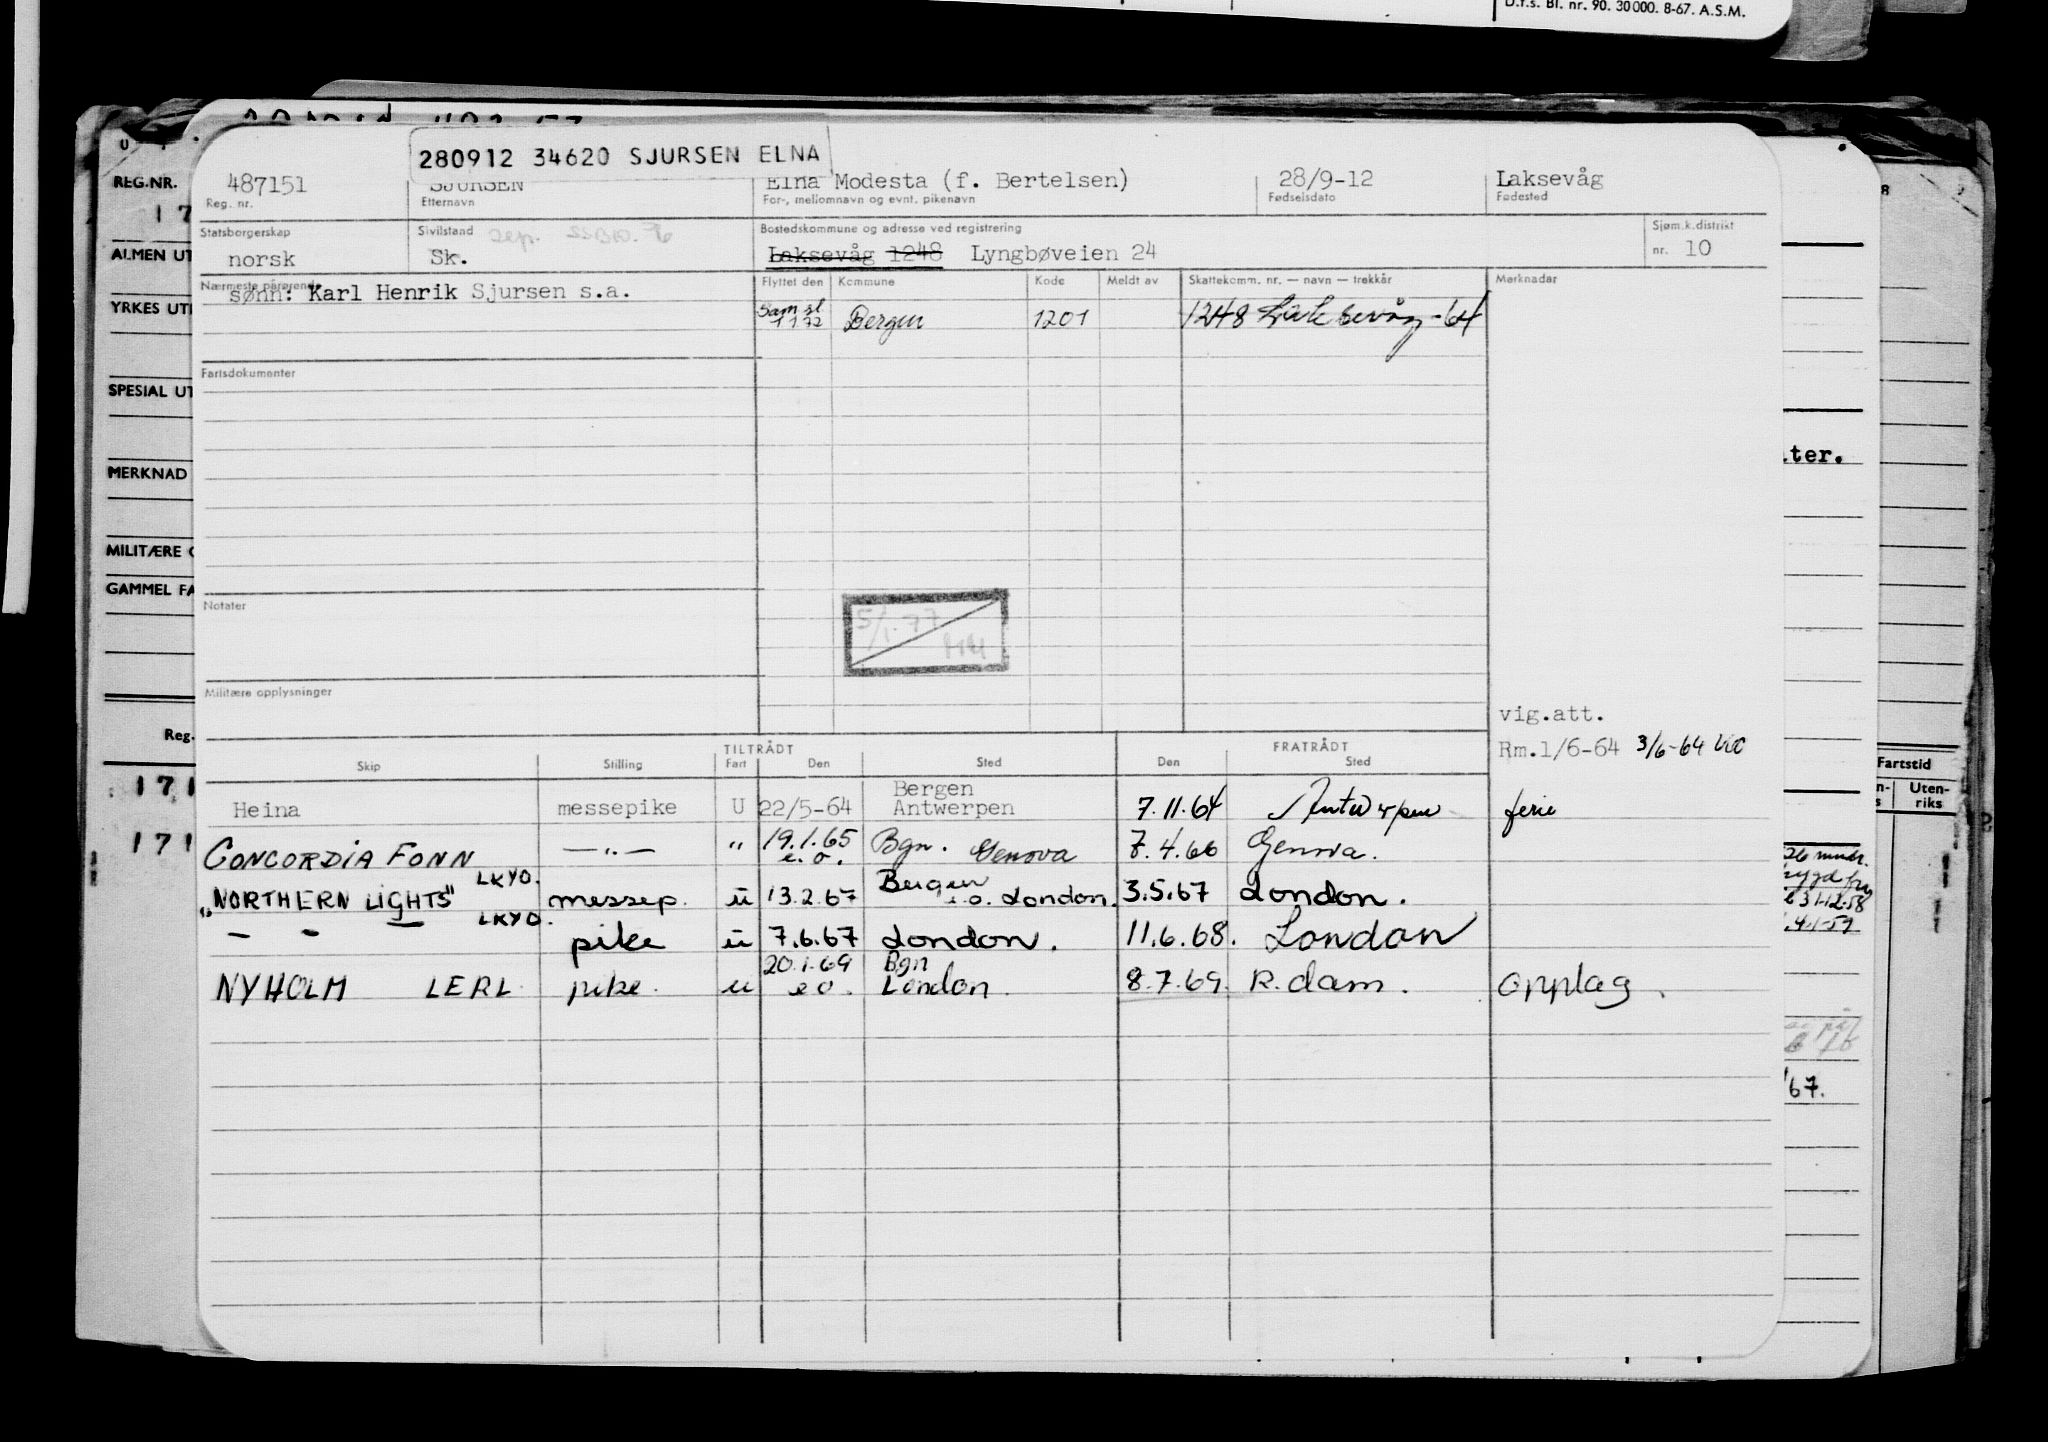 D.f.s. Bl. nr. 90. 30000. 8-67. A.S.M.
280912 34620 SJURSEN ELNA
REG.NR.
487151 SJURSEN Elna Modesta (f. Bertelsen) 28/9-12 Laksevåg
Reg. nr. Etternavn For-, mellomnavn og evnt. pikenavn Fødselsdato Fødested
Statsborgerskap Sivilstand sep. Bostedskommune og adresse ved registrering Sjøm.k.distrikt
norsk Sk. Laksevåg 1248 Lyngbøveien 24 nr. 10
Nærmeste pårørende Flyttet den Kommune Kode Meldt av Skattekomm. nr. — navn — trekkår Merknader
sønn: Karl Henrik Sjursen s.a.
Sam.sl
1 1 72 Bergen 1201 1248 Laksevåg-64
Fartsdokumenter
ALMEN UT
YRKES UT
SPESIAL UT
MERKNAD
MILITÆRE
GAMMEL FA
ter.
Notater
5/1.77
Militære opplysninger
vig.att.
Rm.1/6-64 3/6-64
Reg.
TILTRÅDT FRATRÅDT
Skip Stilling Fart Den Sted Den Sted
Bergen
Heina messepike U 22/5-64 Antwerpen 7.11.64 Antwerpen ferie
CONCORDIA FONN —"— " 19.1.65 e.o. Bgn. Genova 7.4.66 Genova.
"NORTHERN LIGHTS" LKYO. messep. u 13.2.67 Bergen e.o. London. 3.5.67 London.
— - — LKYO. pike u 7.6.67 London. 11.6.68. London
NYHOLM LERL pike. u 20.1.69 e o. Bgn London. 8.7.69. R.dam. Opplag.
Fartstid
Uten-
riks
171
171
31-12-58
4-1-59
/67.